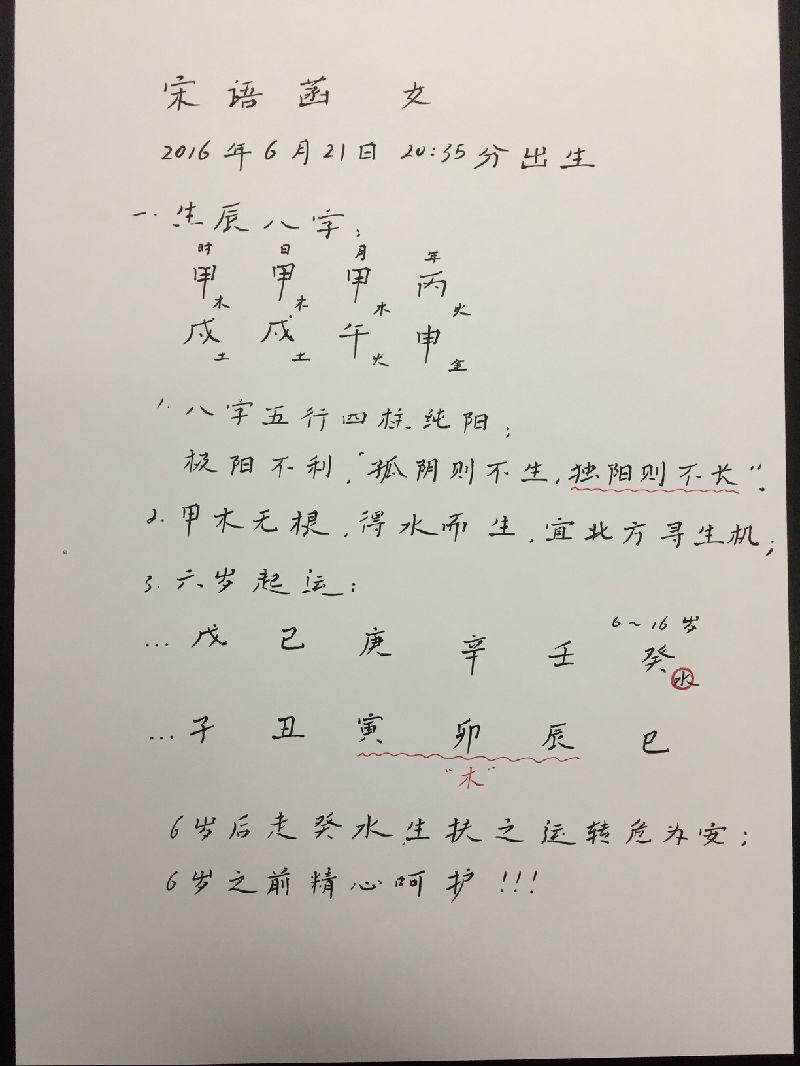 宋语菡 女
2016年6月21日 20:35分出生
一.生辰八字;
时 日 月 年
甲木 甲木 甲木 丙火
戌土 戌土 午火 申金
1.八字五行四柱纯阳;
极阳不利,“孤阴则不生,独阳则不长”.
2.甲木无根,得水而生,宜北方寻生机;
3.六岁起运:
6~16岁
...戊 己 庚 辛 壬 癸水
...子 丑 寅 卯 辰 巳
“木”
6岁后走癸水,生扶之运转危为安;
6岁之前精心呵护!!!